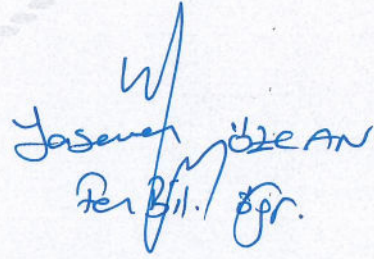 Yasemen ÖZCAN
Fen Bil. Öğr.